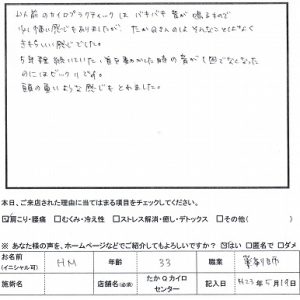 以前のカイロプラクティックは バキバキ 音が 鳴るもので
少し痛い感じもありましたが、たかQさんのは そんなことはなく
きもちいい感じでした。
5年程 続いていた 首を動かした時の音が 1回でなくなった
のにはビックリです。
頭の重いような感じもとれました。
本日、ご来店された理由に当てはまる項目をチェックしてください。
☑肩こり・腰痛 □むくみ・冷え性 □ストレス解消・癒し・デトックス □その他( )
※ あなた様の声を、ホームページなどでご紹介してもよろしいですか？ ☑はい □匿名で □ダメ
お名前 (イニシャル可) HM 年齢 33 職業 薬剤師
施術名 店舗名(必須) たかQカイロセンター 記入日 H23年5月19日